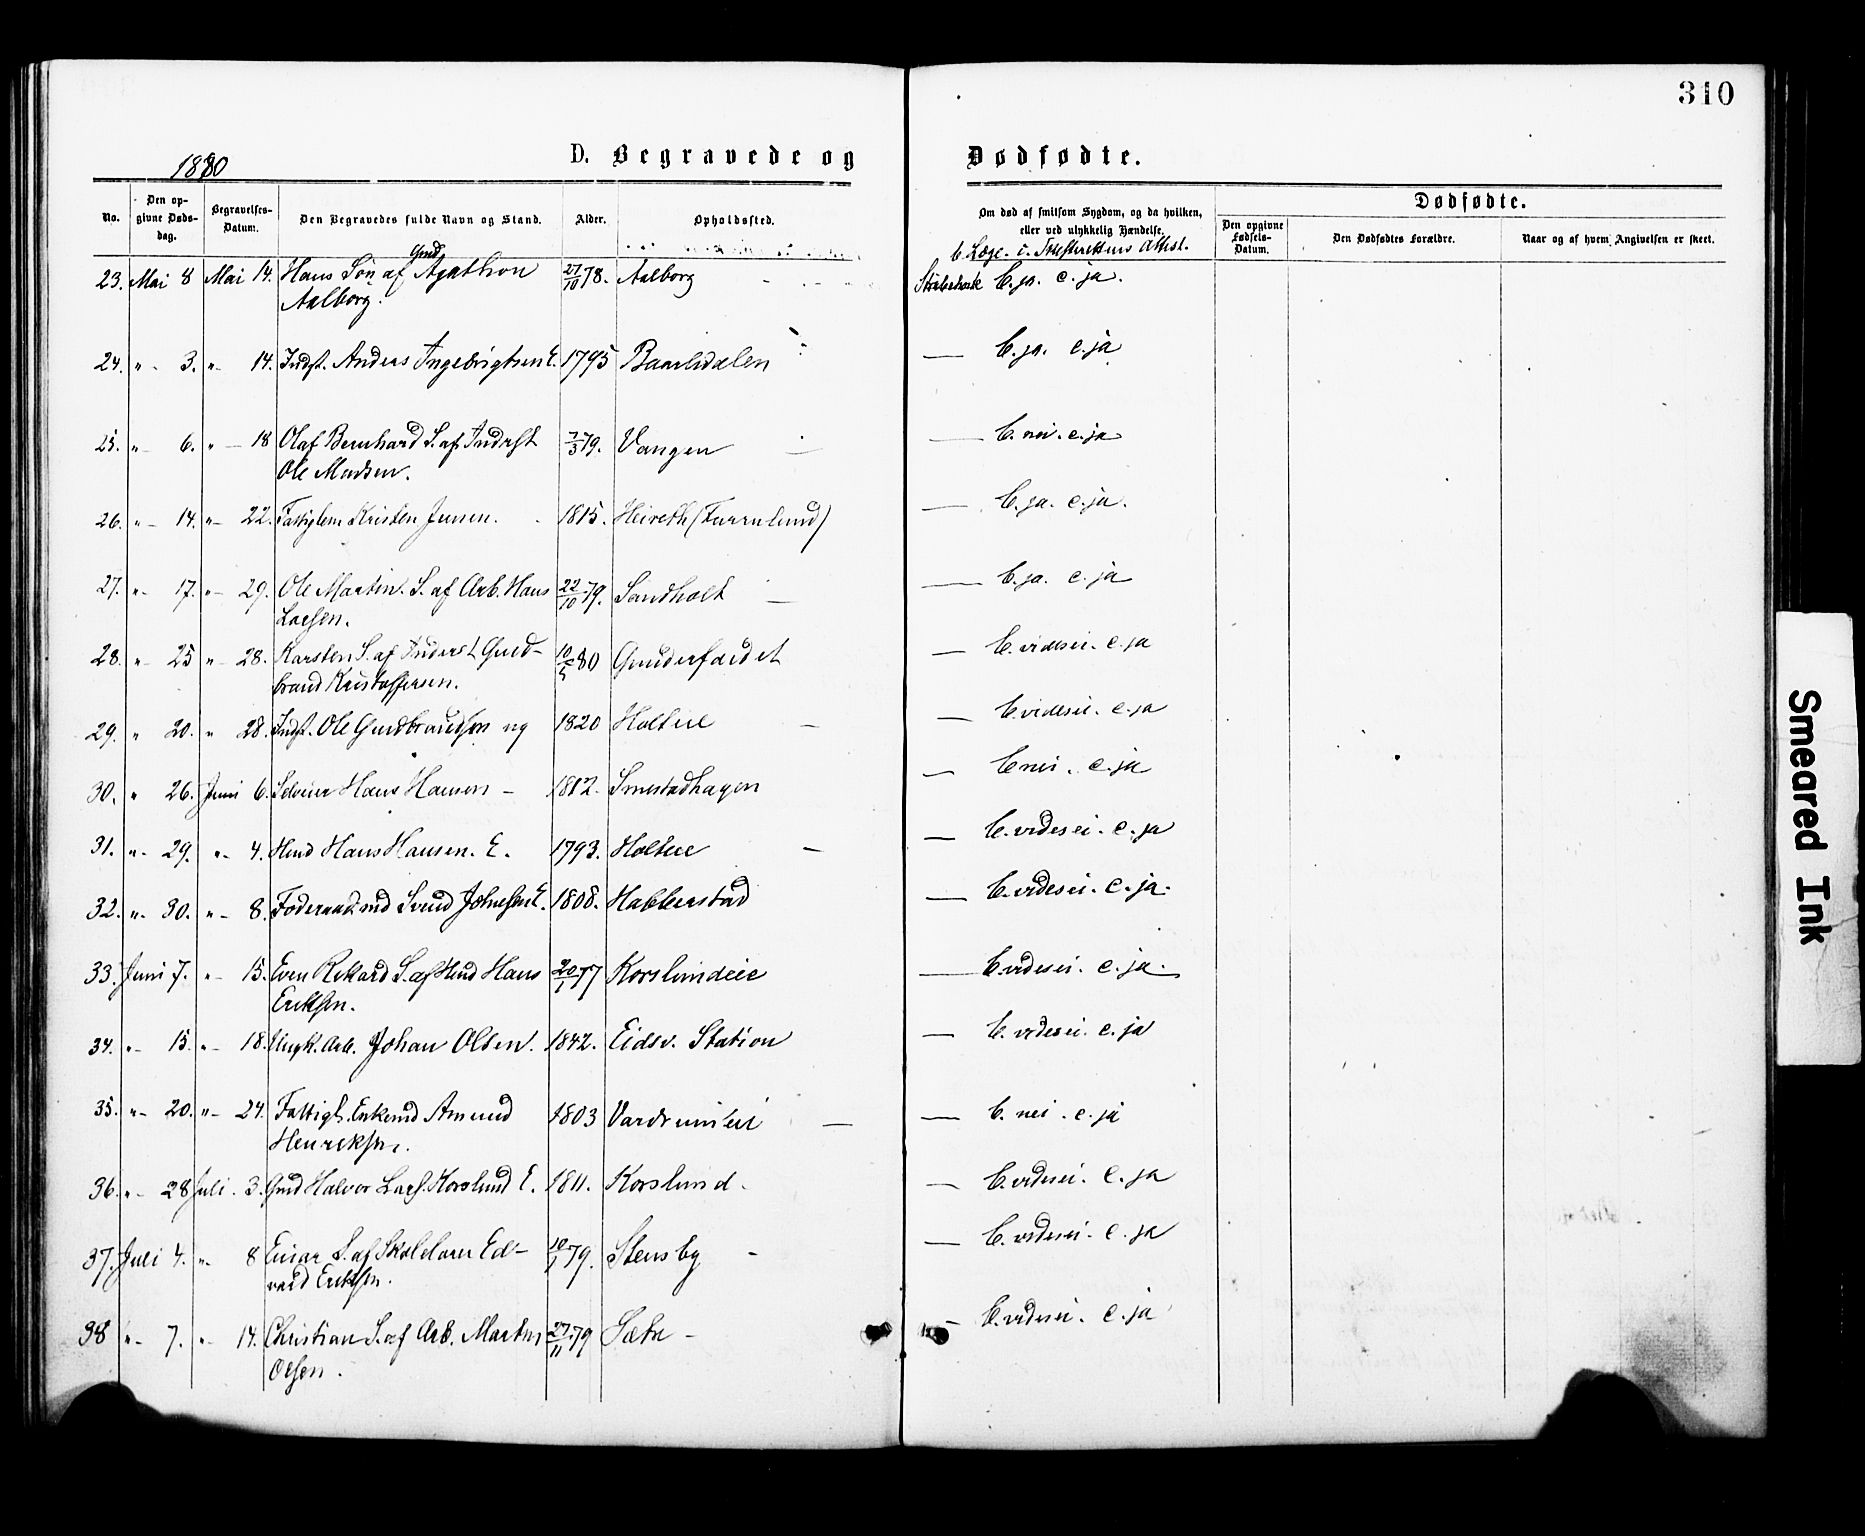 310
1880
D. Begravede og Dødfødte.
No.
Den op-
givne Døds-
dag.
Begravelses-
Datum.
Den Begravedes fulde Navn og Stand.
Alder.
Opholdssted.
Om død af smitsom Sygdom, og da hvilken,
eller ved ulykkelig Hændelse.
b. Læge- c. Attest.
Dødfødte.
Den opgivne
Fødsels-
Datum.
Den Dødfødtes Forældre.
Naar og af hvem Angivelsen er skeet.
23. Mai 8 Mai 14. Hans Søn af Gmd Agathon 27/10 78. Aalborg b. ja. c. ja.
Aalborg.
24. " 3. " 14. Indst. Anders Ingebrigtsen E. 1795 b. ja. c. ja
25. " 6. " 18 Olaf Bernhard S. af Inderst 7/3 79. Vangen b. nei. c. ja
Ole Madsen.
26. " 14. " 22. Fattiglem Kristen Jensen. 1815. b. ja. c. ja.
27. " 17. " 29. Ole Martin. S. af Arb. Hans 22/10 79. Sandholt b. ja. c. ja
Larsen.
28. " 25 " 28. Karsten S. af Inderst Gud- 10/5 80 b. videsei. c. ja
brand Kristoffersen.
29. " 20. " 28. Indst. Ole Gudbrandsen 1820 Holteie b. videsei. c. ja
30. " 26. Juni 6. Selveier Hans Hansen 1812. Smestadhagen b. nei. c. ja
31. " 29. " 4. Hmd Hans Hansen. E. 1793. Holteie b. videsei. c. ja
32. " 30. " 8. Foderaadsmd Svend Johnsen E. 1808. Habberstad b. videsei. c. ja.
33. Juni 7. " 15. Even Rikard S. af Hmd Hans 20/1 77 Korslundeie b. videsei. c. ja.
Eriksen.
34. " 15. " 18. Ungk. Arb. Johan Olsen. 1842. Eidsv. Station b. videsei. c. ja
35. " 20. " 24. Fattigl. Enkemd Amund 1803 b. nei. c. ja
Henriksen.
36. " 28 Juli 3. Gmd Halvor Lars. Korslund E. 1811. Korslund. b. videsei. c. ja
37. Juli 4. " 8 Einar S. af Skolelærer Ed- 10/1 79. Stensby b. videsei. c. ja
vard Eriksen.
38 " 7. " 14. Christian S. af Arb. Martin 27/11 79 Sætre b. videsei. c. ja
Olsen.
Smeared Ink